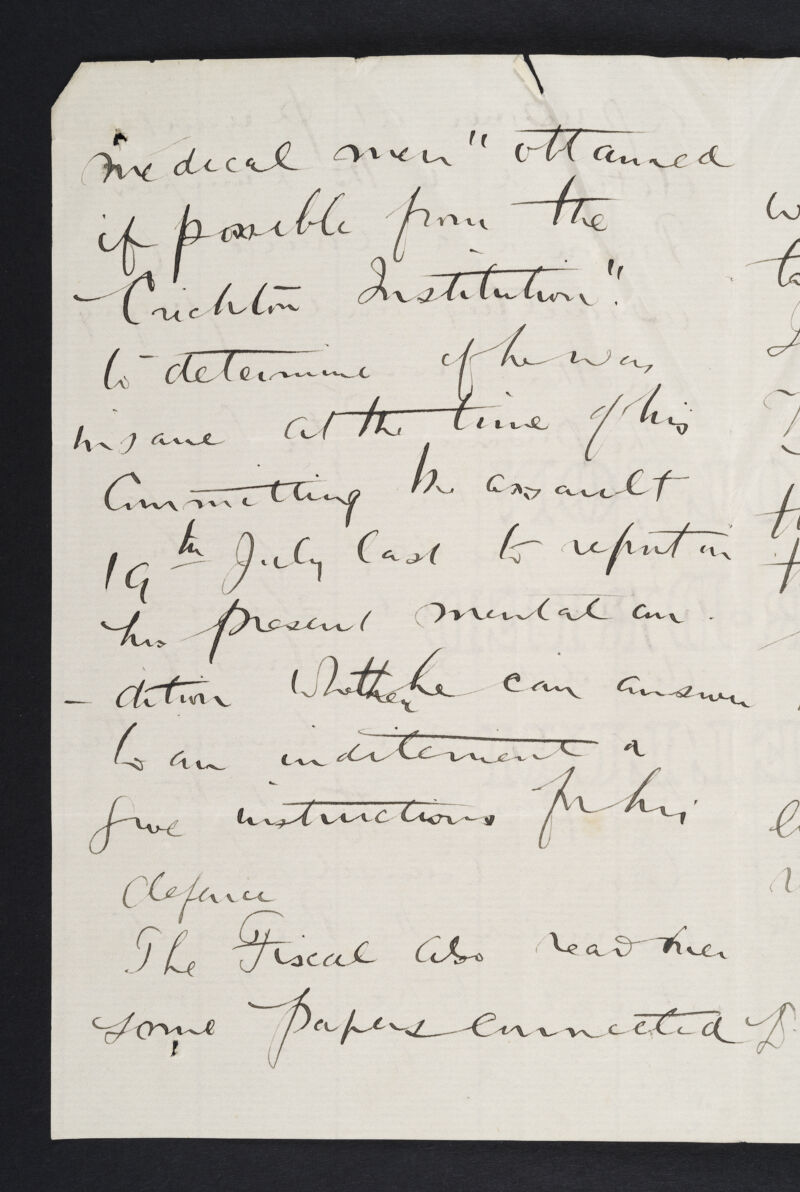 medical men" obtained
if possible from the
Crichton Institution".
to determine if he was
insane at the time of his
Committing the assault
19th July last to report on
his present mental con
- dition Whether he can answer
to an inditement or
give instructions for his
defence
The Fiscal also read over
some papers connected